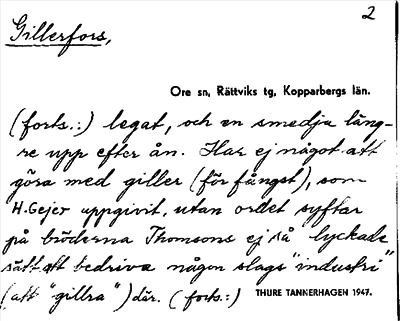 2
Gillerfors,
Ore sn, Rättviks tg, Kopparbergs län.
(forts.:) legat, och en smedja läng-
re upp efter ån. Har ej något att
göra med giller (för fångst), som
H. Gejer uppgivit, utan ordet syftar
på bröderna Thomsons ej så lyckade
sätt att bedriva någon slags "industri"
(att "gillra") där. (forts.:)
THURE TANNERHAGEN 1947.